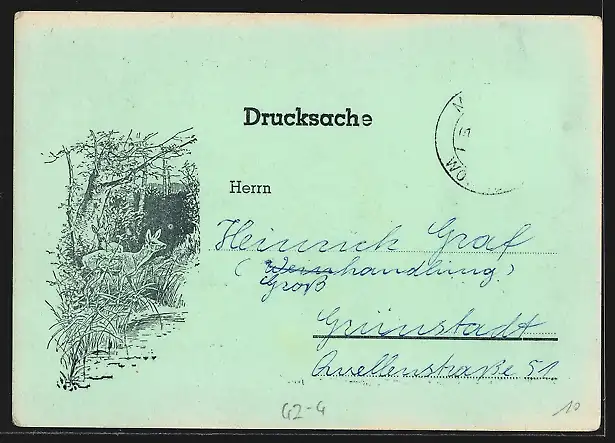 Drucksache
WO
Herrn
Heinrich Graf
(Weinhandlung)
Groß
Grünstadt
Quellenstraße 51
G2-4
10